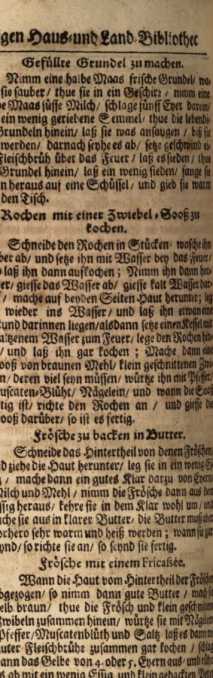 gen Haus-und Land-Bibliothec
Gefüllte Grundel zu machen.
Nimm eine halbe Maas frische Grundel/
sie sauber/ thue sie in ein Geschirr/ nimm eine
be Maas süsse Milch/ schlage fünff Eyer daran/
ein wenig geriebene Semmel/ thue die lebendi-
Grundeln hinein/ laß sie was ansaugen/ biß sie
werden/ darnach seyhe es ab/ setze geschwind
Fleischbrüh über das Feuer/ laß es sieden/ thue
Grundel hinein/ laß ein wenig sieden/
n heraus auf eine Schüssel/ und gieb sie warm
den Tisch.
Rochen mit einer Zwiebel-Sooß zu
kochen.
Schneide den Rochen in Stücken/ wasche ihn
ber ab/ und setze ihn mit Wasser bey das Feuer/
laß ihn dann aufkochen; Nimm ihn dann
er/ giesse das Wasser ab/ giesse kalt Wasser dar-
/ mache auf beyden Seiten Haut herunter/
wieder ins Wasser/ und laß ihn
und darinnen liegen/ alsdann setze einen Kessel mit
altzenem Wasser zum Feuer/ lege den Rochen
/ und laß ihn gar kochen; Mache dann eine
ooß von braunen Mehl/ klein geschnittenen Zwie-
n/ deren viel seyn müssen/ würtze ihn mit Pfeffer/
uscaten-Blüht/ Nägelein/ und wann die Sooß
tig ist/ richte den Rochen an/ und giesse die
ooß darüber/ so ist es fertig.
Frösche zu backen in Butter.
Schneide das Hintertheil von denen Fröschen
d ziehe die Haut herunter/ leg sie in ein wenig
/ mache dann ein gutes Klar dazu von Eyern
Milch und Mehl/ nimm die Frösche dann aus dem
ssig heraus/ kehre sie in dem Klar wohl um/
che sie aus in klarer Butter/ die Butter muß
orhero sehr warm und heiß werden; wann sie gar
ynd/ so richte sie an/ so seynd sie fertig.
Frösche mit einem Fricassée.
Wann die Haut vom Hintertheil der Frösche
bgezogen/ so nimm dann gute Butter/
elb braun/ thue die Frösch und klein geschnittene
wibeln zusammen hinein/ würtze sie mit Nägelein
Pfeffer/ Muscatenblüth und Saltz/ laß es dann
uter Fleischbrühe zusammen gar kochen/
ann das Gelbe von 4. oder 5. Eyern aus/ und rühre
s ab mit ein wenig Essig/ und klein gehackten